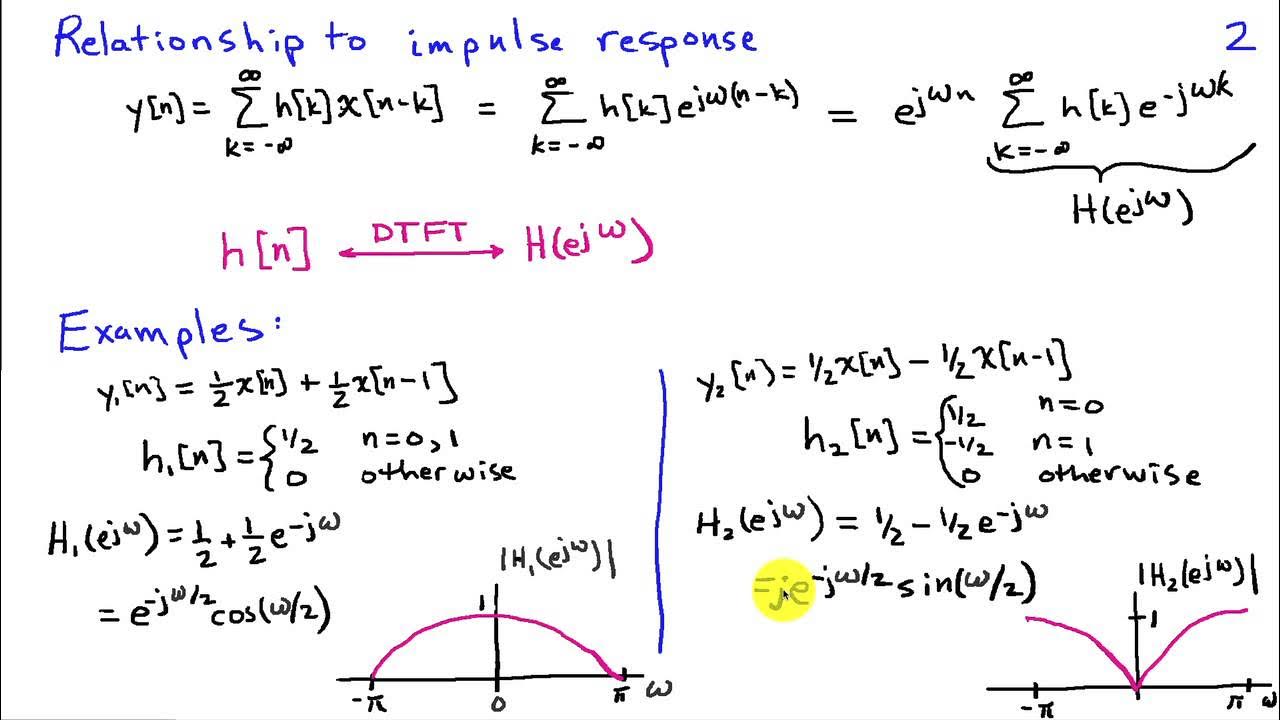 Relationship to impulse response 2
y[n] = ∞ ∑ k=-∞ h[k]x[n-k] = ∞ ∑ k=-∞ h[k]e^{jω(n-k)} = e^{jωn} ∞ ∑ k=-∞ h[k]e^{-jωk}
H(e^{jω})
h[n] ⟷ DTFT H(e^{jω})
Examples:
y₁[n] = 1/2 x[n] + 1/2 x[n-1]
h₁[n] = { 1/2 n=0,1
0 otherwise
H₁(e^{jω}) = 1/2 + 1/2 e^{-jω}
= e^{-jω/2} cos(ω/2)
|H₁(e^{jω})|
1
-π 0 π ω
y₂[n) = 1/2 x[n] - 1/2 x[n-1]
h₂[n] = { 1/2 n=0
-1/2 n=1
0 otherwise
H₂(e^{jω}) = 1/2 - 1/2 e^{-jω}
=je^{-jω/2} sin(ω/2)
|H₂(e^{jω})|
1
-π π ω